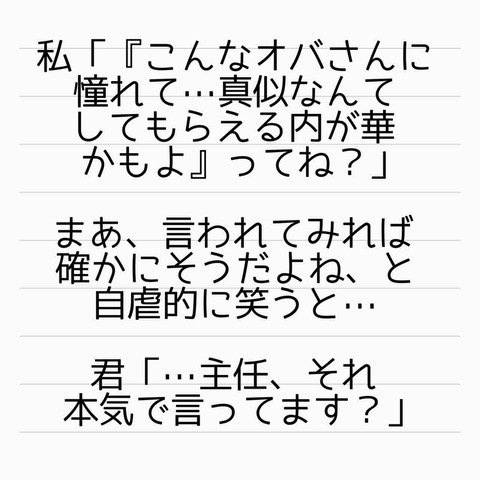 私「『こんなオバさんに
憧れて…真似なんて
してもらえる内が華
かもよ』ってね？」
まあ、言われてみれば
確かにそうだよね、と
自虐的に笑うと…
君「…主任、それ
本気で言ってます？」